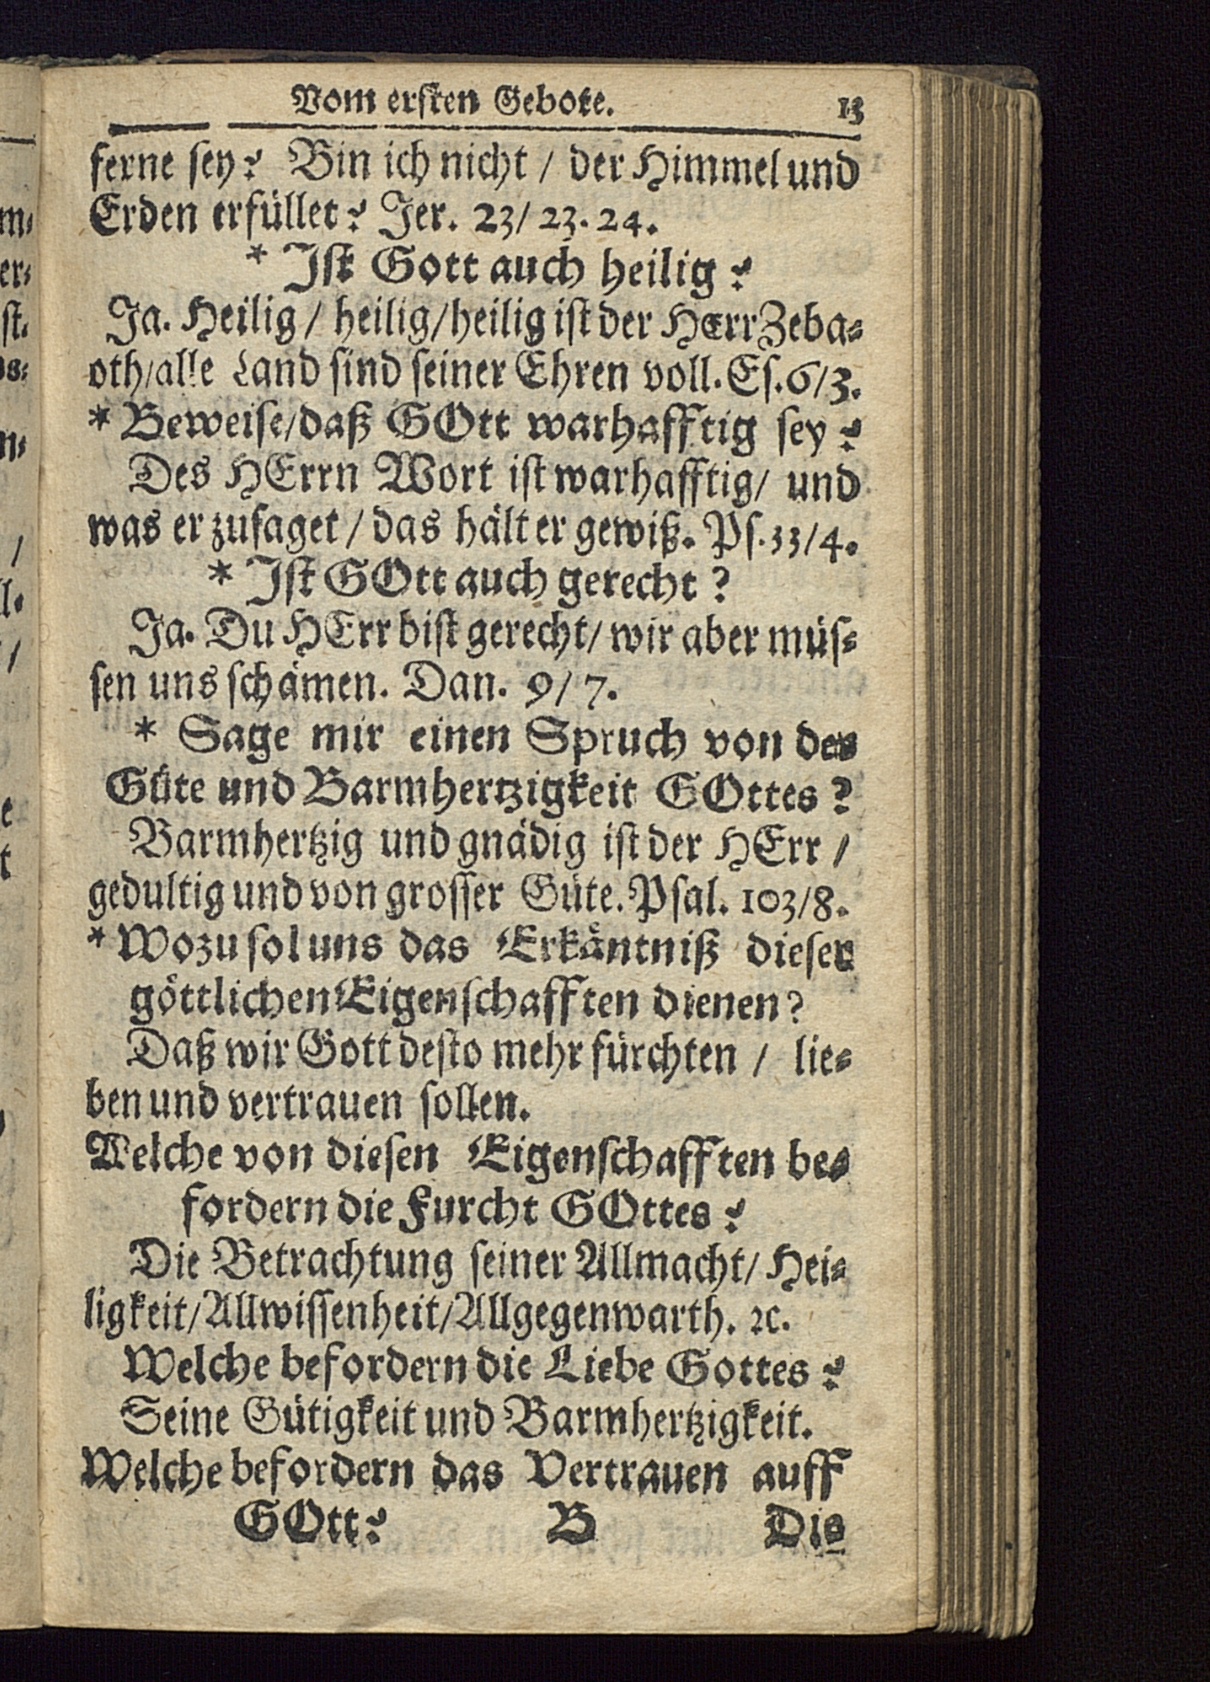 Vom ersten Gebote. 13
ferne sey? Bin ich nicht / der Himmel und
Erden erfüllet? Jer. 23/ 23. 24.
* Ist Gott auch heilig?
Ja. Heilig / heilig/heilig ist der HErr Zeba-
oth/alle Land sind seiner Ehren voll. Es. 6/3.
* Beweise/daß GOtt warhafftig sey?
Des HErrn Wort ist warhafftig/ und
was er zusaget / das hält er gewiß. Ps. 33/4.
* Ist GOtt auch gerecht?
Ja. Du HErr bist gerecht/ wir aber müs-
sen uns schämen. Dan. 9/7.
* Sage mir einen Spruch von der
Güte und Barmhertzigkeit GOttes?
Barmhertzig und gnädig ist der HErr /
gedultig und von grosser Güte. Psal. 103/8.
* Wozu sol uns das Erkäntniß dieser
göttlichen Eigenschafften dienen?
Daß wir Gott desto mehr fürchten / lie-
ben und vertrauen sollen.
Welche von diesen Eigenschafften be-
fordern die Furcht GOttes?
Die Betrachtung seiner Allmacht/ Hei-
ligkeit/Allwissenheit/Allgegenwarth. ꝛc.
Welche befordern die Liebe Gottes?
Seine Gütigkeit und Barmhertzigkeit.
Welche befordern das Vertrauen auff
GOtt? B Die